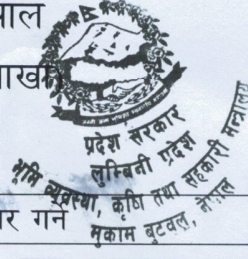 पाल
ाखा)
प्रदेश सरकार
लुम्बिनी प्रदेश
भूमि व्यवस्था, कृषि तथा सहकारी मन्त्रालय
मुकाम बुटवल, नेपाल
ार गर्ने